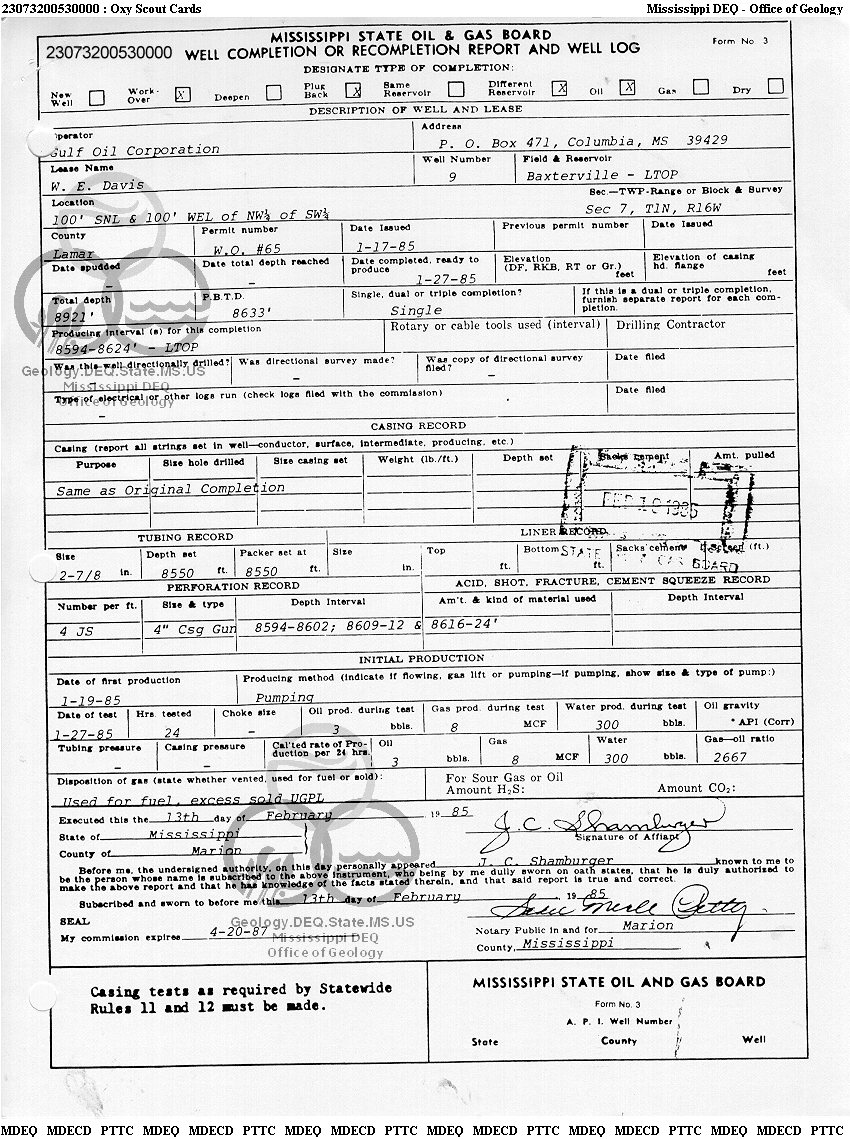 23073200530000 : Oxy Scout Cards Mississippi DEQ - Office of Geology
MISSISSIPPI STATE OIL & GAS BOARD
23073200530000 WELL COMPLETION OR RECOMPLETION REPORT AND WELL LOG Form No. 3
DESIGNATE TYPE OF COMPLETION:
New Well Work-Over X Deepen Plug Back X Same Reservoir Different Reservoir X Oil X Gas Dry
DESCRIPTION OF WELL AND LEASE
Operator Address
Gulf Oil Corporation P. O. Box 471, Columbia, MS 39429
Lease Name Well Number Field & Reservoir
W. E. Davis 9 Baxterville - LTOP
Location Sec.—TWP-Range or Block & Survey
100' SNL & 100' WEL of NW¼ of SW¼ Sec 7, T1N, R16W
County Permit number Date Issued Previous permit number Date Issued
Lamar W.O. #65 1-17-85
Date spudded Date total depth reached Date completed, ready to produce Elevation (DF, RKB, RT or Gr.) feet Elevation of casing hd. flange feet
- - 1-27-85
Total depth P.B.T.D. Single, dual or triple completion? If this is a dual or triple completion, furnish separate report for each completion.
8921' 8633' Single
Producing interval (s) for this completion Rotary or cable tools used (interval) Drilling Contractor
8594-8624' - LTOP
Was this well directionally drilled? Was directional survey made? Was copy of directional survey filed? Date filed
- - -
Geology.DEQ.State.MS.US
Mississippi DEQ
Office of Geology
Type of electrical or other logs run (check logs filed with the commission) Date filed
-
CASING RECORD
Casing (report all strings set in well—conductor, surface, intermediate, producing, etc.)
Purpose Size hole drilled Size casing set Weight (lb./ft.) Depth set Sacks cement Amt. pulled
Same as Original Completion
FEB 1985
TUBING RECORD LINER RECORD
Size Depth set Packer set at Size Top Bottom Sacks cement (ft.)
2-7/8 in. 8550 ft. 8550 ft. in. ft. ft.
STATE BOARD
PERFORATION RECORD ACID, SHOT, FRACTURE, CEMENT SQUEEZE RECORD
Number per ft. Size & type Depth Interval Am't. & kind of material used Depth Interval
4 JS 4" Csg Gun 8594-8602; 8609-12 & 8616-24'
INITIAL PRODUCTION
Date of first production Producing method (indicate if flowing, gas lift or pumping—if pumping, show size & type of pump:)
1-19-85 Pumping
Date of test Hrs. tested Choke size Oil prod. during test Gas prod. during test Water prod. during test Oil gravity
1-27-85 24 - 3 bbls. 8 MCF 300 bbls. ° API (Corr)
Tubing pressure Casing pressure Cal'ted rate of Production per 24 hrs. Oil Gas Water Gas—oil ratio
- - 3 bbls. 8 MCF 300 bbls. 2667
Disposition of gas (state whether vented, used for fuel or sold): For Sour Gas or Oil
Amount H2S: Amount CO2:
Used for fuel, excess sold UGPL
Executed this the 13th day of February 19 85 J. C. Shamburger
State of Mississippi Signature of Affiant
County of Marion
Before me, the undersigned authority, on this day personally appeared J. C. Shamburger known to me to
be the person whose name is subscribed to the above instrument, who being by me duly sworn on oath states, that he is duly authorized to
make the above report and that he has knowledge of the facts stated therein, and that said report is true and correct.
Subscribed and sworn to before me this 13th day of February 19 85
SEAL Geology.DEQ.State.MS.US Notary Public in and for Marion
My commission expires 4-20-87 Mississippi DEQ County, Mississippi
Office of Geology
Casing tests as required by Statewide
Rules 11 and 12 must be made.
MISSISSIPPI STATE OIL AND GAS BOARD
Form No. 3
A. P. I. Well Number
State County Well
MDEQ MDECD PTTC MDEQ MDECD PTTC MDEQ MDECD PTTC MDEQ MDECD PTTC MDEQ MDECD PTTC MDEQ MDECD PTTC